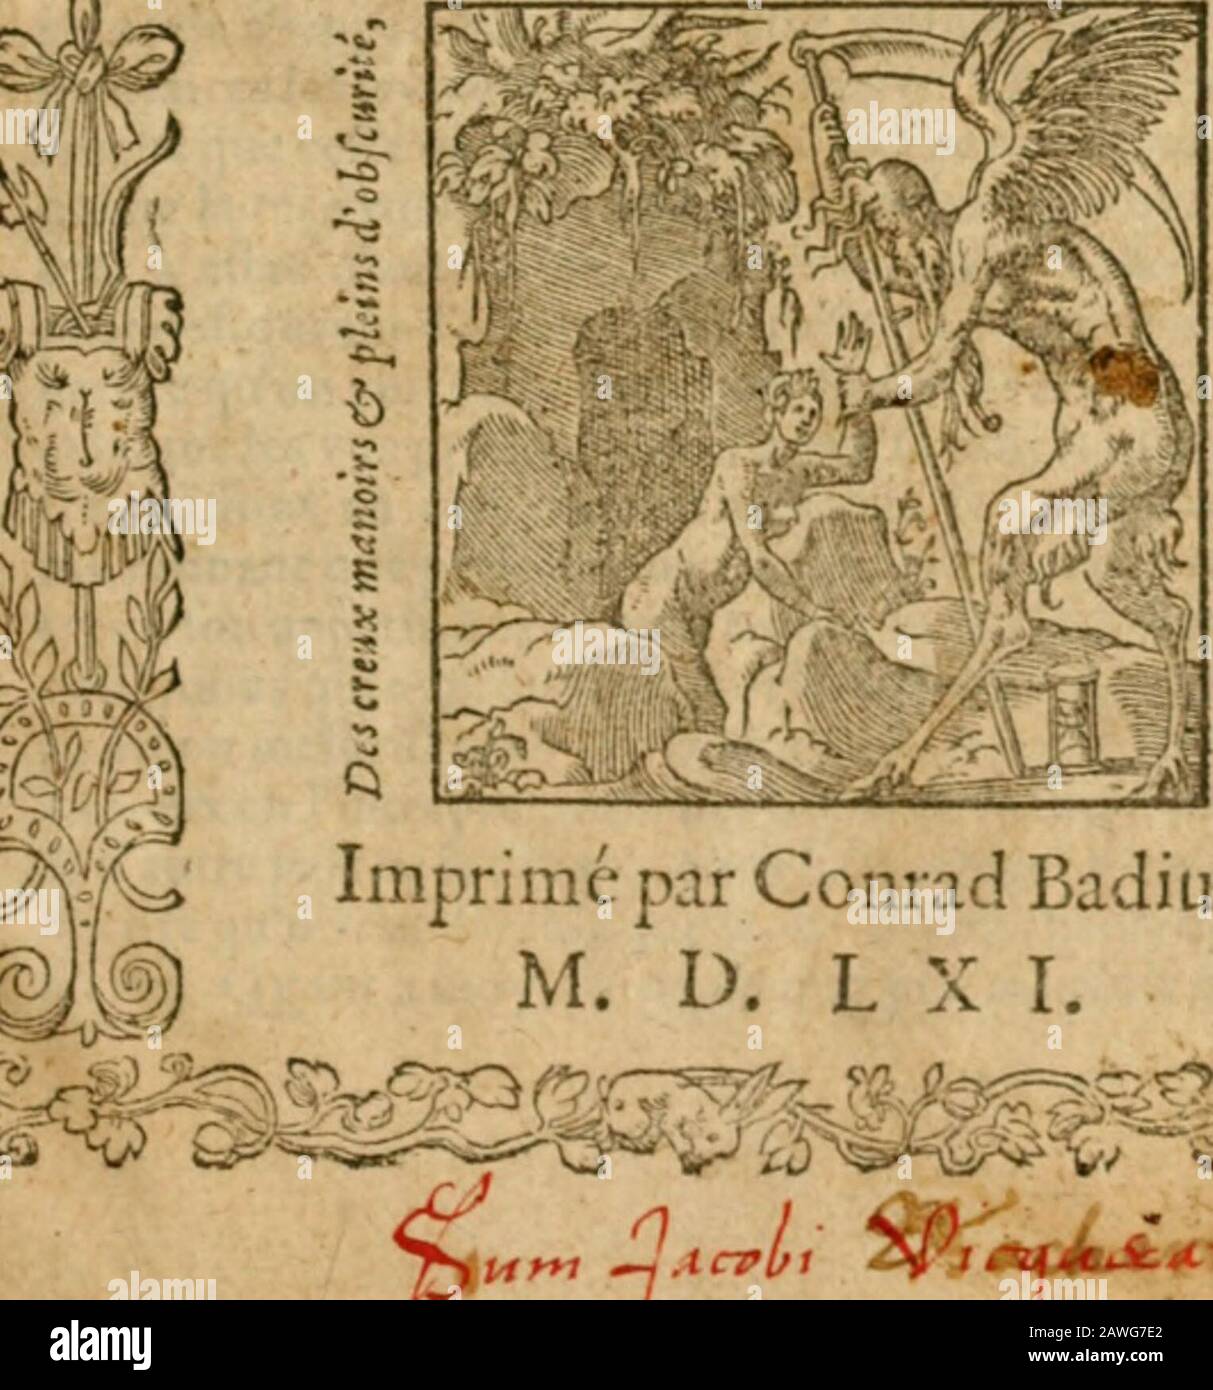 Des creux manoirs & pleins d'obſcurité,
Imprimé par Conrad Badiu
M. D. L X I.
Sum Jacobi
alamy
Image ID: 2AWG7E2
www.alamy.com